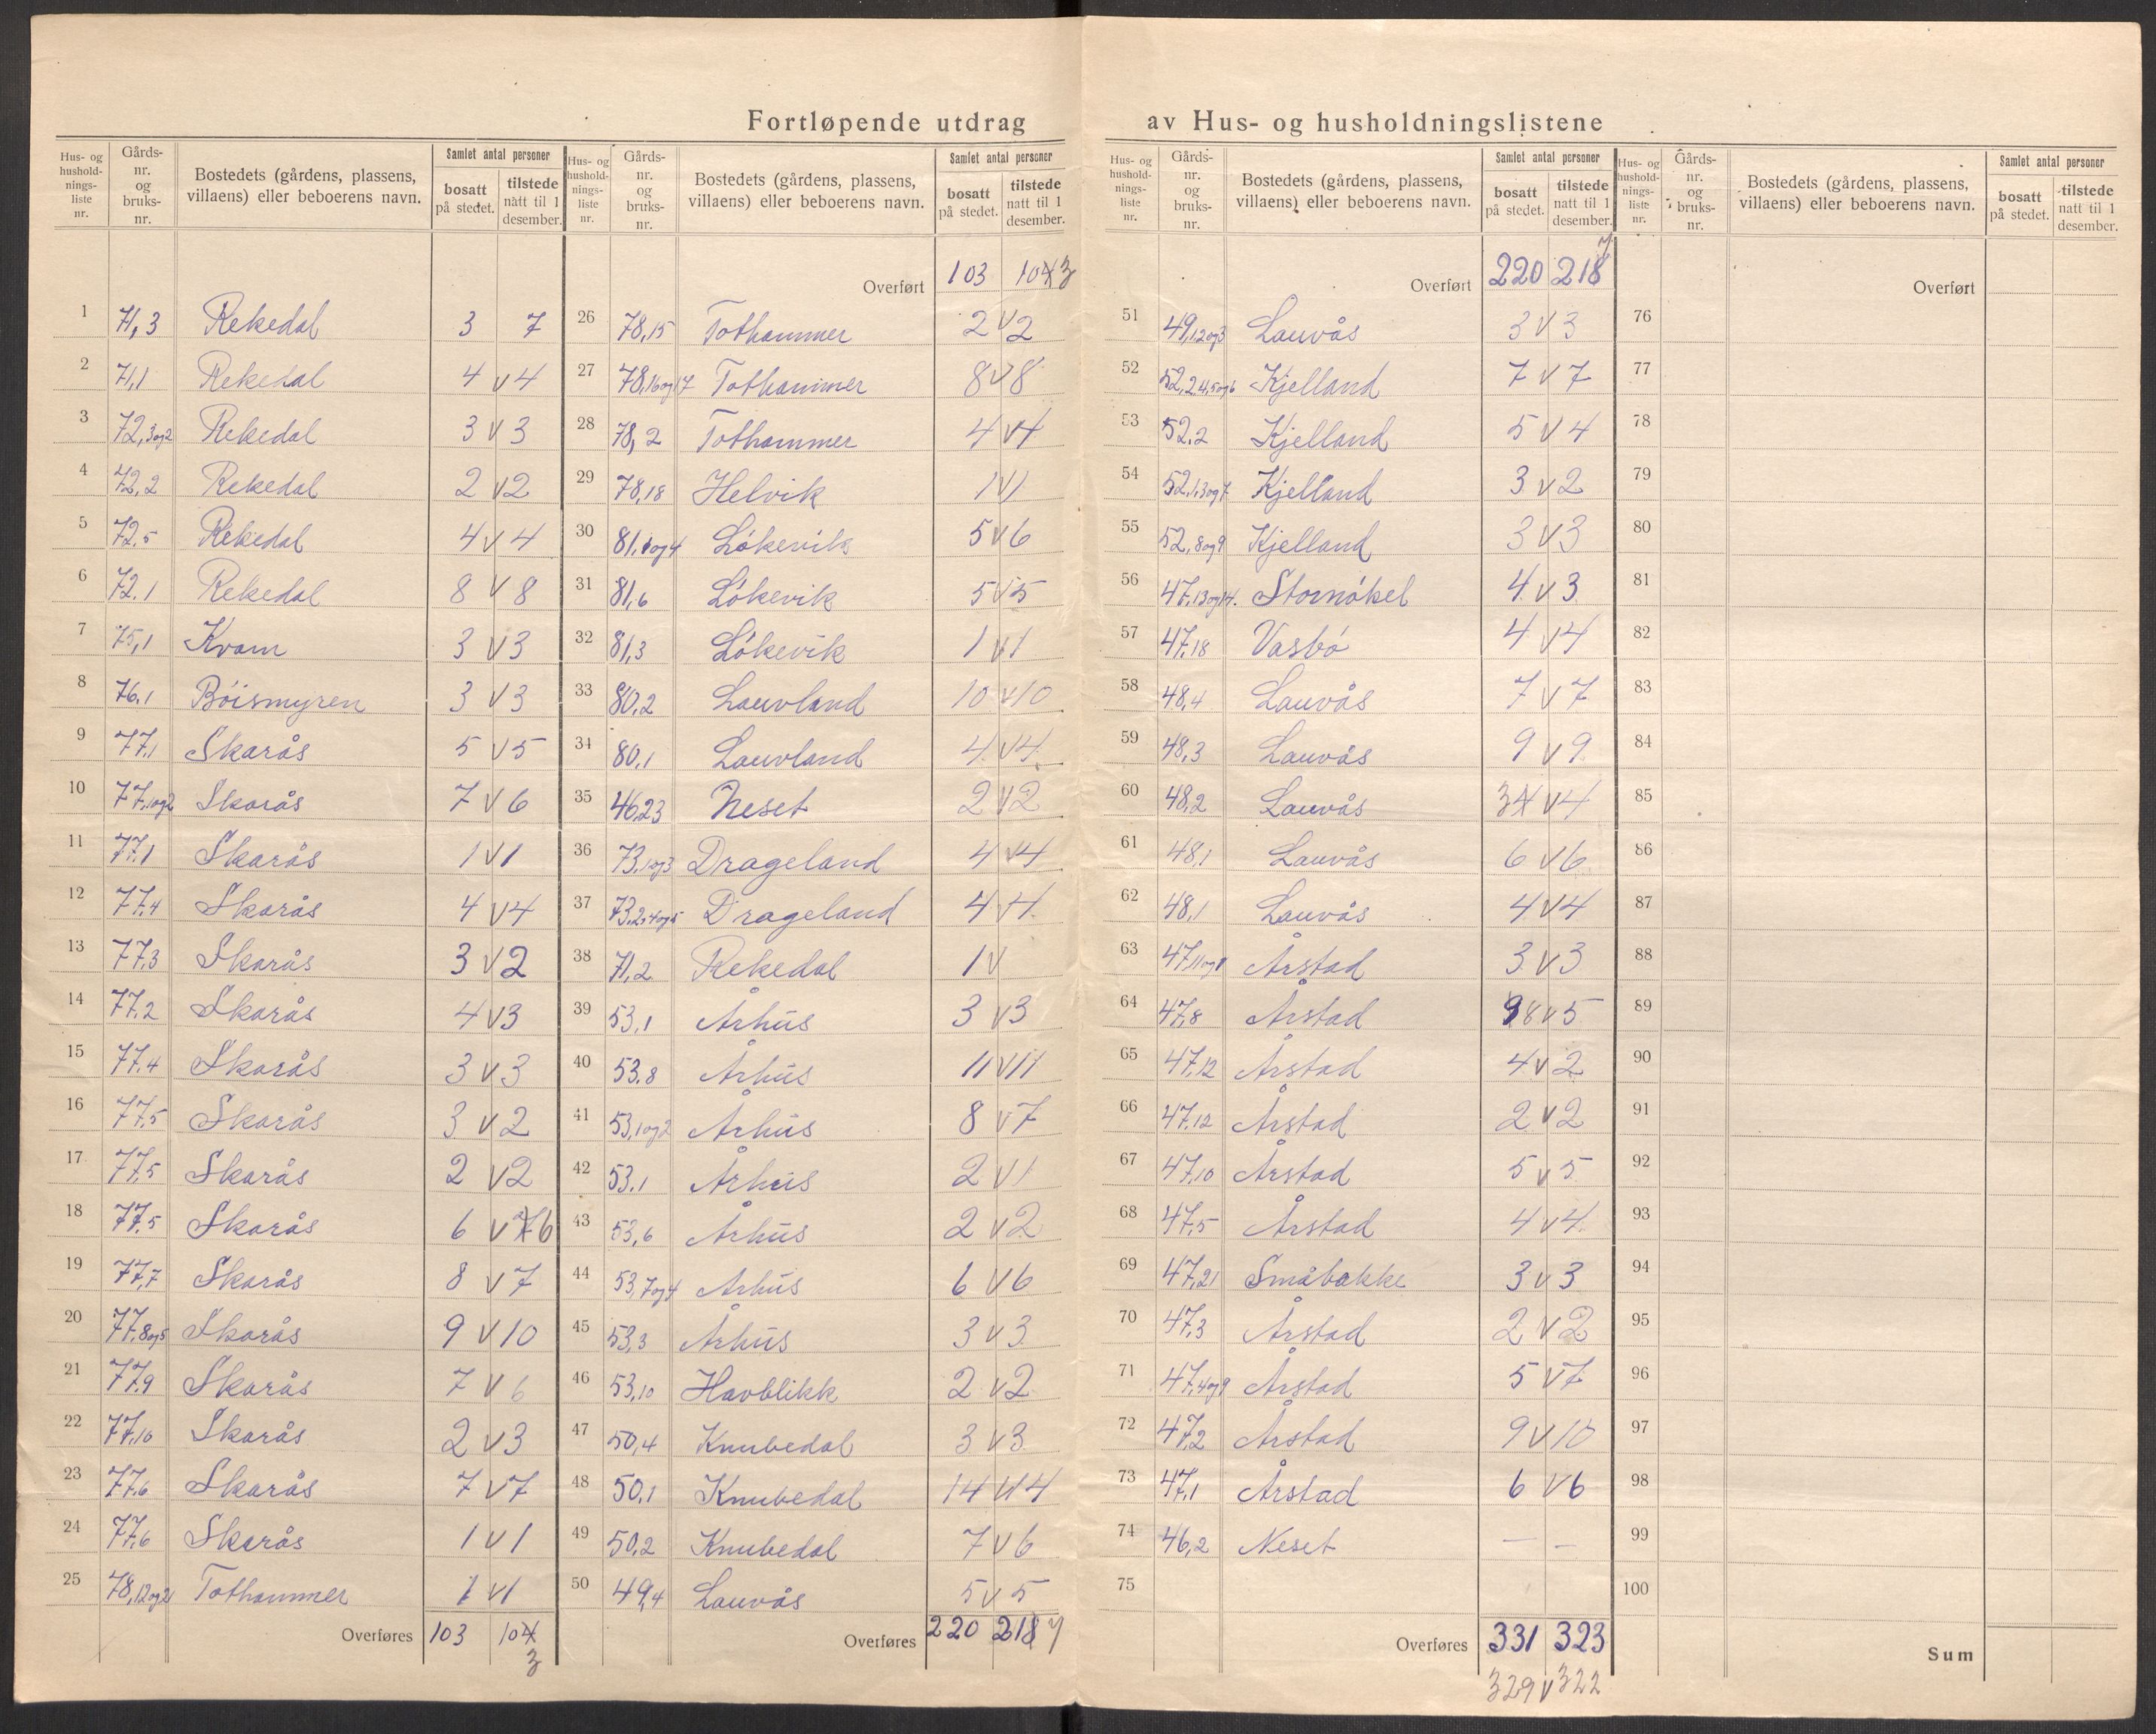 Fortløpende utdrag av Hus- og husholdningslistene
Hus- og hushold-nings-liste nr. | Gårds-nr. og bruks-nr. | Bostedets (gårdens, plassens, villaens) eller beboerens navn. | Samlet antal personer | bosatt på stedet. | tilstede natt til 1 desember.
1 71,3 Rekedal 3 7
2 71,1 Rekedal 4 v 4
3 72,3og2 Rekedal 3 v 3
4 72,2 Rekedal 2 v 2
5 72.5 Rekedal 4 v 4
6 72.1 Rekedal 8 v 8
7 75,1 Kvam 3 v 3
8 76.1 Böismyren 3 v 3
9 77,1 Skarås 5 v 5
10 77,1og2 Skarås 7 v 6
11 77,1 Skarås 1 v 1
12 77,4 Skarås 4 v 4
13 77,3 Skarås 3 v 2
14 77,2 Skarås 4 v 3
15 77,4 Skarås 3 v 3
16 77,5 Skarås 3 v 2
17 77,5 Skarås 2 v 2
18 77,5 Skarås 6 v 7 6
19 77,7 Skarås 8 v 7
20 77,8og5 Skarås 9 v 10
21 77,9 Skarås 7 v 6
22 77,10 Skarås 2 v 3
23 77,6 Skarås 7 v 7
24 77,6 Skarås 1 v 1
25 78,12og21 Tothammer 1 v 1
Overføres 103 104 3
Hus- og hushold-nings-liste nr. | Gårds-nr. og bruks-nr. | Bostedets (gårdens, plassens, villaens) eller beboerens navn. | Samlet antal personer | bosatt på stedet. | tilstede natt til 1 desember.
Overført 103 104 3
26 78,15 Tothammer 2 v 2
27 78,16og17 Tothammer 8 v 8
28 78,2 Tothammer 4 v 4
29 78,18 Helvik 1 v 1
30 81,1og4 Lökevik 5 v 6
31 81,6 Lökevik 5 v 5
32 81,3 Lökevik 1 v 1
33 80,2 Lauvland 10 v 10
34 80,1 Lauvland 4 v 4
35 46,23 Neset 2 v 2
36 73,1og3 Drageland 4 v 4
37 73,2,4og5 Drageland 4 v 4
38 71,2 Rekedal 1 v
39 53,1 Århus 3 v 3
40 53.8 Århus 11 v 11
41 53,1og2 Århus 8 v 7
42 53.1 Århus 2 v 1
43 53,6 Århus 2 v 2
44 53,7og4 Århus 6 v 6
45 53,3 Århus 3 v 3
46 53,10 Havblikk 2 v 2
47 50,4 Knubedal 3 v 3
48 50,1 Knubedal 14 v 14
49 50,2 Knubedal 7 v 6
50 49,4 Lauvås 5 v 5
Overføres 220 218 7
Hus- og hushold-nings-liste nr. | Gårds-nr. og bruks-nr. | Bostedets (gårdens, plassens, villaens) eller beboerens navn. | Samlet antal personer | bosatt på stedet. | tilstede natt til 1 desember.
Overført 220 218 7
51 49,1,2og3 Lauvås 3 v 3
52 52,2,4,5og6 Kjelland 7 v 7
53 52,2 Kjelland 5 v 4
54 52,1,3og7 Kjelland 3 v 2
55 52,8og9 Kjelland 3 v 3
56 47,13og14. Stornökel 4 v 3
57 47,18 Vasbö 4 v 4
58 48,4 Lauvås 7 v 7
59 48,3 Lauvås 9 v 9
60 48,2 Lauvås 3 4 v 4
61 48,1 Lauvås 6 v 6
62 48,1 Lauvås 4 v 4
63 Årstad 3 v 3
64 47,8 Årstad 9 8 v 5
65 47,12 Årstad 4 v 2
66 47,12 Årstad 2 v 2
67 47,10 Årstad 5 v 5
68 47,5 Årstad 4 v 4
69 47,21 Småbakke 3 v 3
70 47,3 Årstad 2 v 2
71 47,4og9 Årstad 5 v 7
72 47,2 Årstad 9 v 10
73 47,1 Årstad 6 v 6
74 46,2 Neset — —
75
Overføres 331 323
329 v 322
Hus- og hushold-nings-liste nr. | Gårds-nr. og bruks-nr. | Bostedets (gårdens, plassens, villaens) eller beboerens navn. | Samlet antal personer | bosatt på stedet. | tilstede natt til 1 desember.
Overført
76
77
78
79
80
81
82
83
84
85
86
87
88
89
90
91
92
93
94
95
96
97
98
99
100
Sum